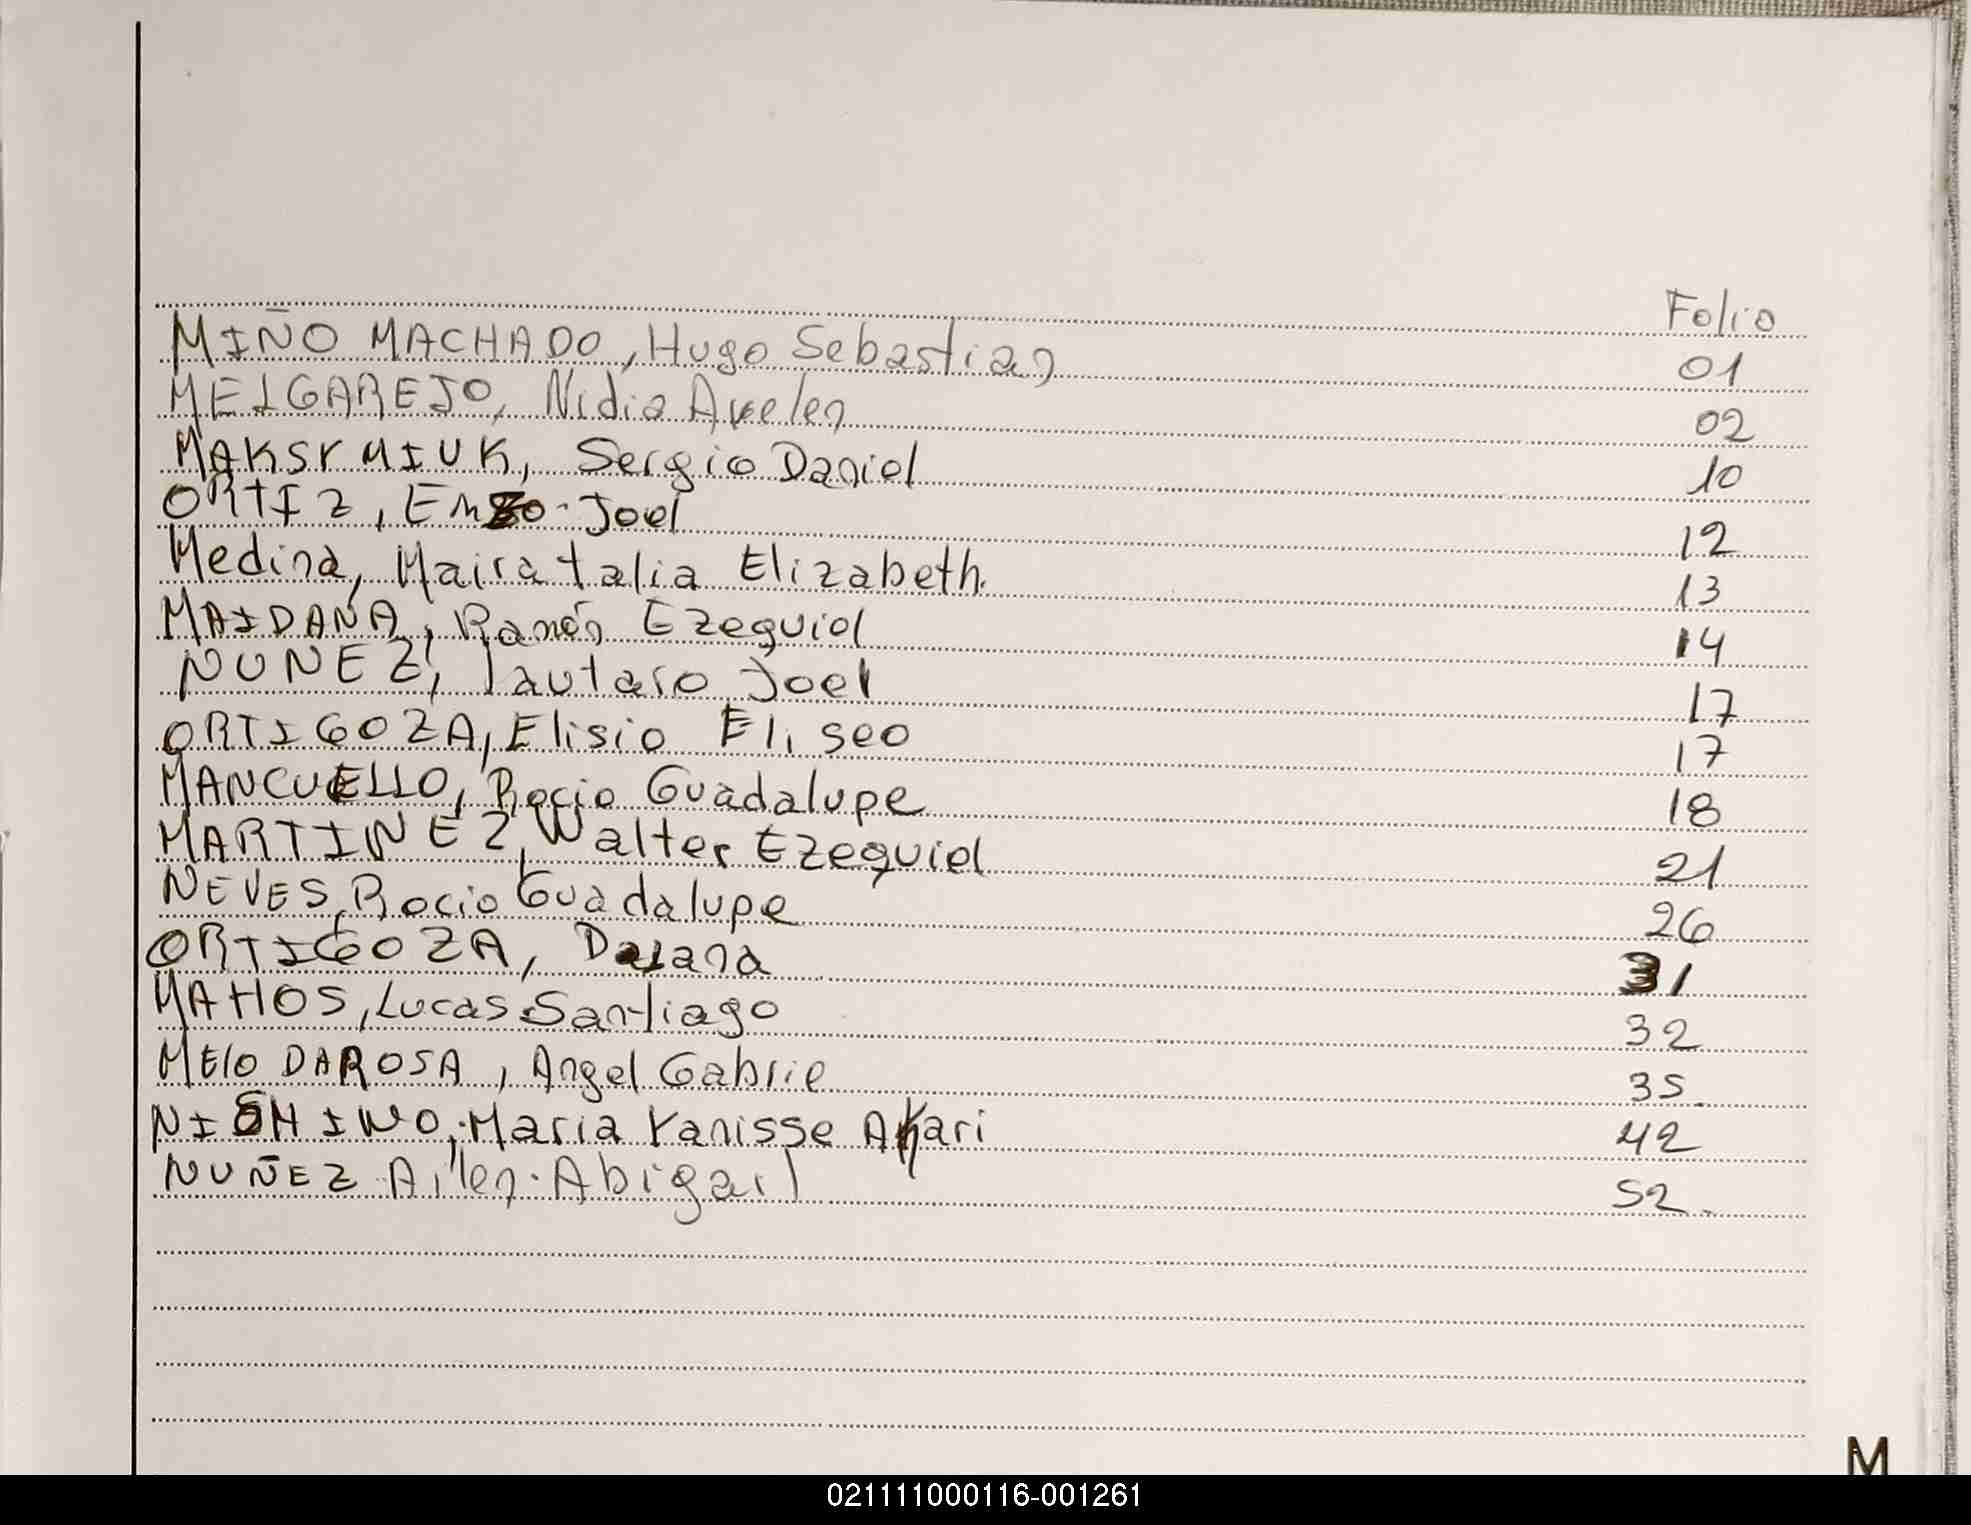 Folio
MIÑO MACHADO, Hugo Sebastian 01
MELGAREJO, Nidia Ayelen 02
MAKSYMIUK, Sergio Daniel 10
ORTIZ, Enzo Joel 12
Medina, Maira talia Elizabeth. 13
MAIDANA, Ramón Ezequiel 14
NUNEZ, lautaro Joel 17
ORTIGOZA, Elisio Eliseo 17
MANCUELLO, Rocio Guadalupe 18
MARTINEZ, Walter Ezequiel 21
NEVES, Rocio Guadalupe 26
ORTIGOZA, Daiana 31
MAHOS, Lucas Santiago 32
MElO DAROSA, Angel Gabrie 35.
NISHINO, Maria Yanisse Akari 42
NUÑEZ Ailen Abigail 52.
M
021111000116-001261